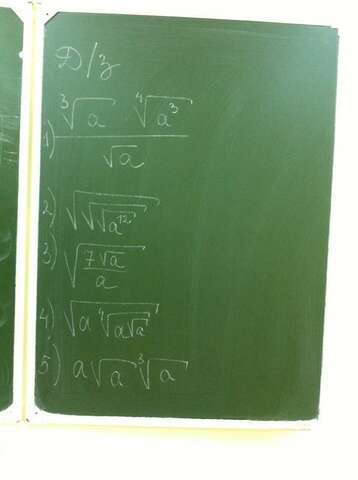 Д/з
1) \frac{\sqrt[3]{a} \sqrt[4]{a^3}}{\sqrt{a}}
2) \sqrt{\sqrt{\sqrt{a^{12}}}}
3) \sqrt{\frac{7\sqrt{a}}{a}}
4) \sqrt{a \sqrt[4]{a\sqrt{a}}}
5) a\sqrt{a} \sqrt[3]{a}